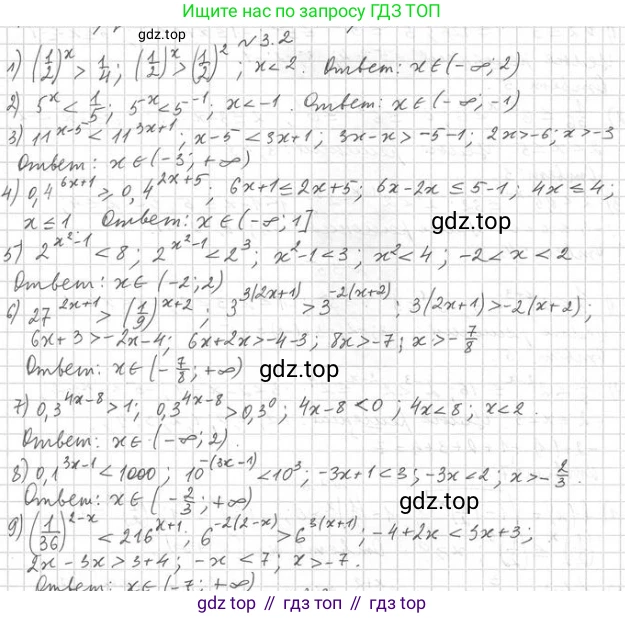 Ищите нас по запросу ГДЗ ТОП
№3.2
1) (1/2)^x > 1/4; (1/2)^x > (1/2)^2; x<2. Ответ: x∈(-∞; 2)
2) 5^x < 1/5; 5^x < 5^-1; x<-1. Ответ: x∈(-∞; -1)
3) 11^(x-5) < 11^(3x+1); x-5 < 3x+1; 3x-x > -5-1; 2x>-6; x>-3
Ответ: x∈(-3; +∞)
4) 0,4^(6x+1) ≥ 0,4^(2x+5); 6x+1 ≤ 2x+5; 6x-2x ≤ 5-1; 4x ≤ 4;
x ≤ 1 Ответ: x∈(-∞; 1]
gdz.top
5) 2^(x^2-1) < 8; 2^(x^2-1) < 2^3; x^2-1<3; x^2<4; -2<x<2
Ответ: x∈(-2; 2)
6) 27^(2x+1) > (1/9)^(x+2); 3^(3(2x+1)) > 3^(-2(x+2)); 3(2x+1)>-2(x+2);
6x+3>-2x-4; 6x+2x>-4-3; 8x>-7; x>-7/8
Ответ: x∈(-7/8; +∞)
gdz.top
7) 0,3^(4x-8) > 1; 0,3^(4x-8) > 0,3^0; 4x-8<0; 4x<8; x<2.
Ответ: x∈(-∞; 2).
8) 0,1^(3x-1) < 1000; 10^(-(3x-1)) < 10^3; -3x+1<3; -3x<2; x>-2/3.
Ответ: x∈(-2/3; +∞)
gdz.top
9) (1/36)^(2-x) < 216^(x+1); 6^(-2(2-x)) > 6^(3(x+1)); -4+2x < 3x+3;
2x-3x>3+4; -x<7; x>-7.
Ответ: x∈(-7; +∞)
gdz top // гдз топ // gdz.top